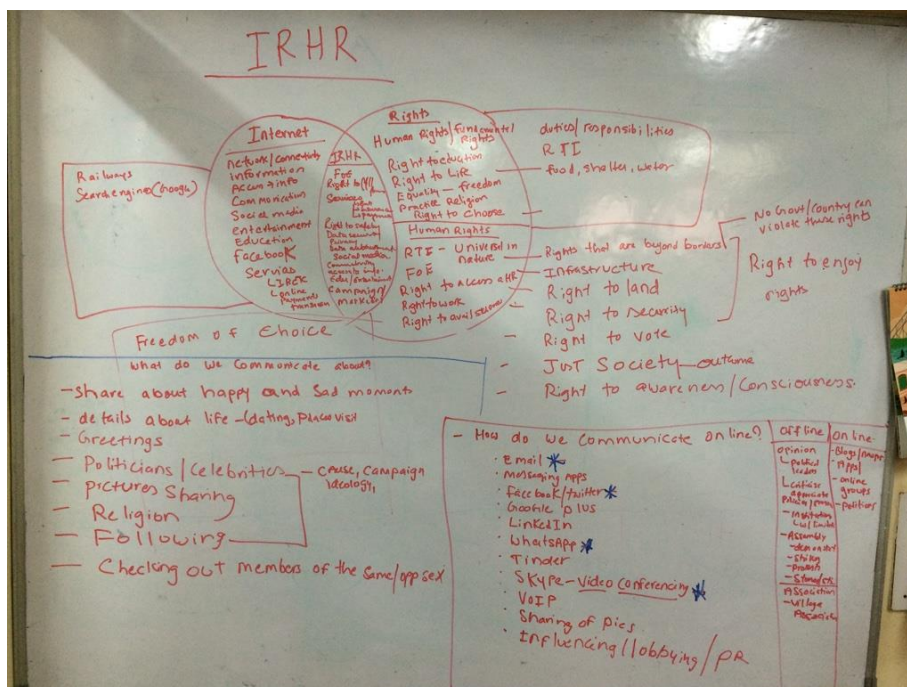 IRHR
Internet
Network/connectivity
Information
Access info
Communication
Social media
entertainment
Education
facebook
Services
online
payments
Railways
Search engines (Google)
IRHR
FOE
Right to
Services
Right to safety
Data security
Privacy
Social media
Community
access to info.
Campaign/
marketing
Rights
Human Rights/fundamental
Rights
Right to education
Right to Life
Equality - freedom
Practice Religion
Right to Choose
Human Rights
RTI - Universal in
nature
FOE
Right to access eHR
Right to work
Right to avail
duties/responsibilities
RTI
- food, shelter, water
Rights that are beyond borders
- Infastructure
- Right to land
- Right to security
- Right to vote
- Just Society - outcome
- Right to awareness/Consciousness.
No Govt/country can
violate these rights
Right to enjoy
rights
Freedom of Choice
What do we communicate about?
- share about happy and sad moments
- details about life - (dating, Places visit
- Greetings
- Politicians/celebrities
- pictures sharing
- Religion
- Following
cause, campaign
ideology,
- Checking out members of the same/opp sex
- How do we communicate online?
· Email *
· Messaging Apps
· Facebook/twitter *
· Google plus
· LinkedIn
· WhatsApp *
· Tinder
· SKYPE - Video Conferencing *
· VoIP
· Sharing of Pics
· Influencing/lobbying/PR
Offline
opinion
Political
leaders
criticise
appreciate
- Institution
- Assembly
- Strikes
- protest
Association
- Village
Online
- Blogs
- Apps
- online
groups
- Politics